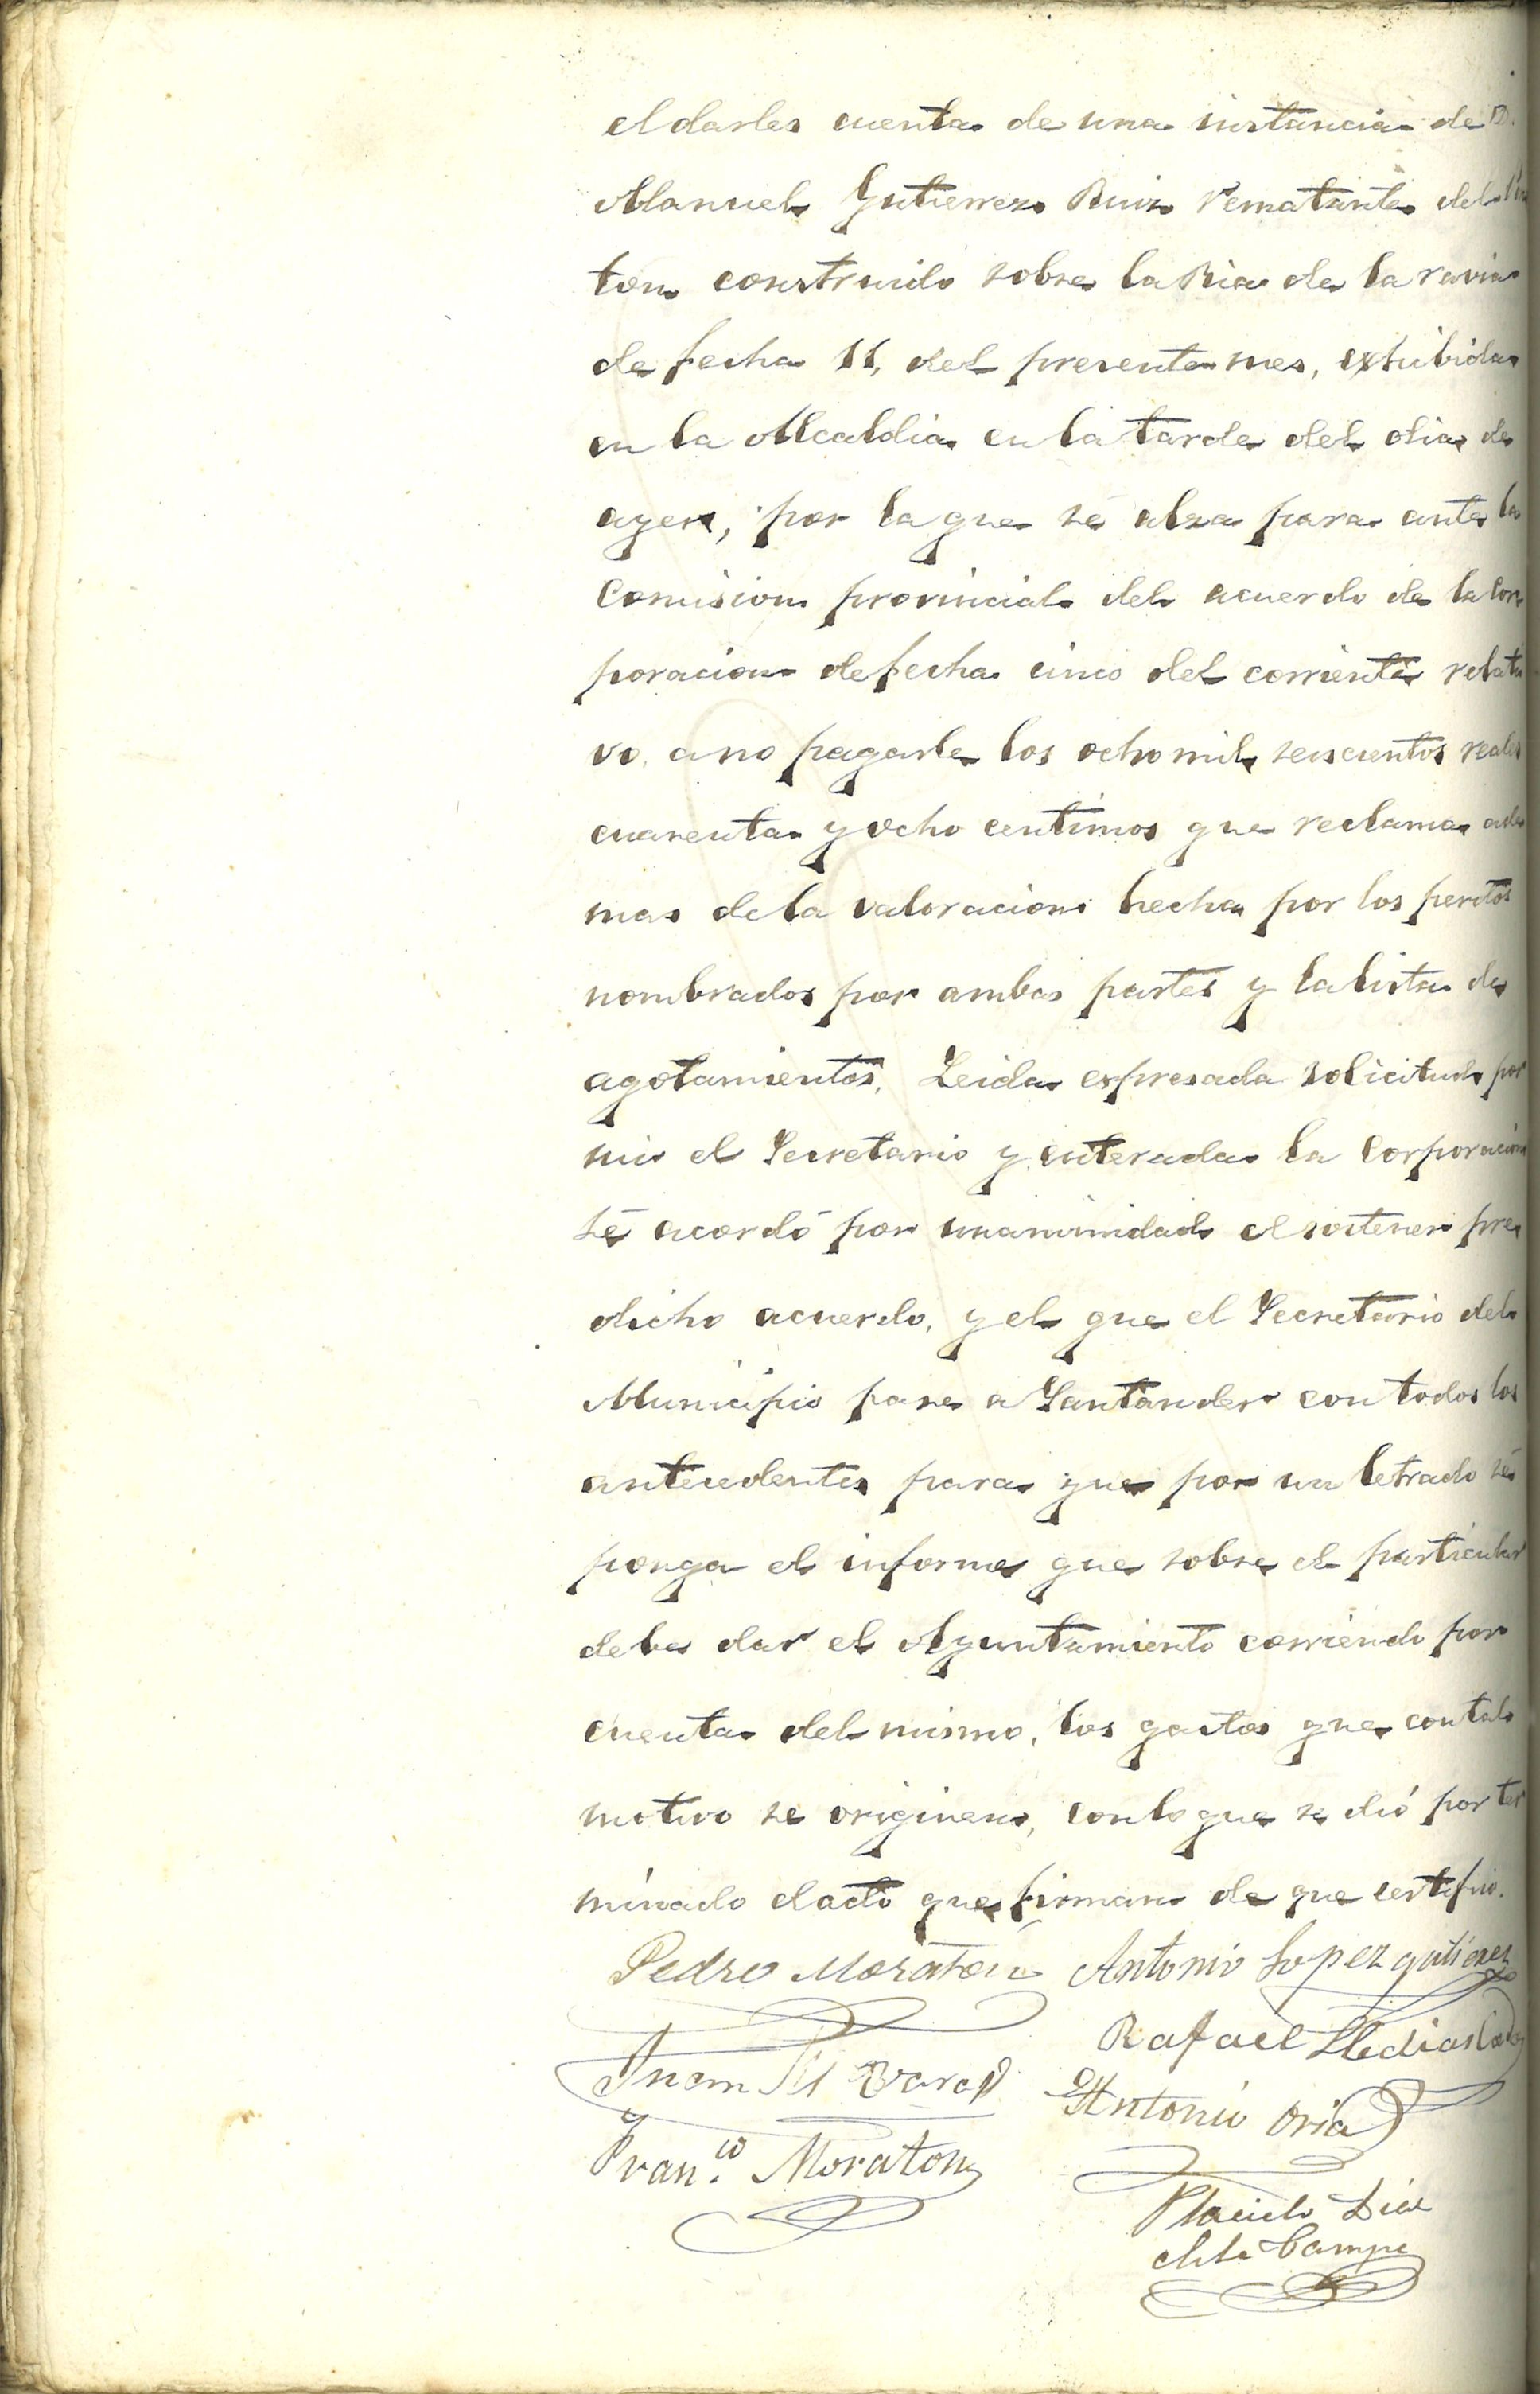 el darles cuenta de una instancia de D.
Manuel Gutierrez Ruiz rematante del
ton construido sobre la Ria de la ravia
de fecha 11, del presente mes, exhibida
en la Alcaldia en la tarde del dia de
ayer, por la que se alza para ante la
Comision provincial del acuerdo de la Cor
poracion de fecha cinco del corriente relati
vo, a no pagarle los ocho mil seiscientos reales
cuarenta y ocho centimos que reclama ade
mas de la valoracion hecha por los peritos
nombrados por ambas partes y la lista de
agotamientos. Leida expresada solicitud por
mi el Secretario y enterada la Corporacion
se acordó por unanimidad el sostener pre
dicho acuerdo, y el que el Secretario del
Municipio pase a Santander con todos los
antecedentes para que por un letrado se
ponga el informe que sobre el particular
debe dar el Ayuntamiento corriendo por
cuenta del mismo, los gastos que con tal
motivo se originen, con lo que se dió por ter
minado el acto que firman de que certifico.
Pedro Moraton Antonio Lopez gutierez
Rafael
Juan
Antonio Oria
y
Fran.co Moraton
Placido Diaz
de la Campa